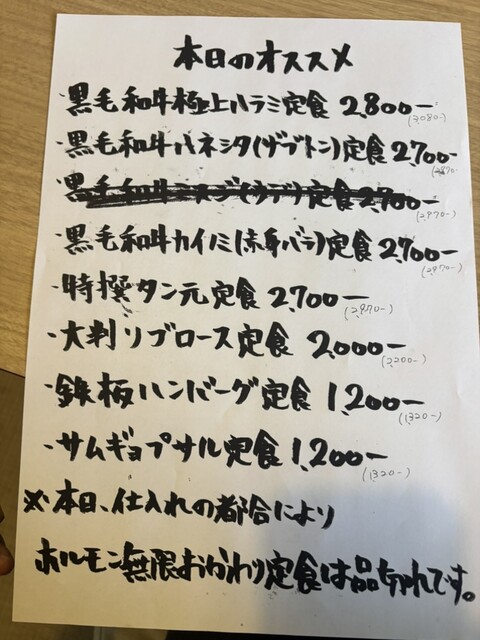 本日のオススメ
・黒毛和牛極上ハラミ定食 2,800ー
(3,080-)
・黒毛和牛ハネシタ(ザブトン)定食 2,700ー
(2,970-)
・黒毛和牛ミスジ(ウデ)定食 2,700ー
(2,970-)
・黒毛和牛カイノミ(赤身バラ)定食 2,700ー
(2,970-)
・特撰タン元定食 2,700ー
(2,970-)
・大判リブロース定食 2,000ー
(2,200-)
・鉄板ハンバーグ定食 1,200ー
(1,320-)
・サムギョプサル定食 1,200ー
(1,320-)
※本日、仕入れの都合により
ホルモン無限おかわり定食は品切れです。